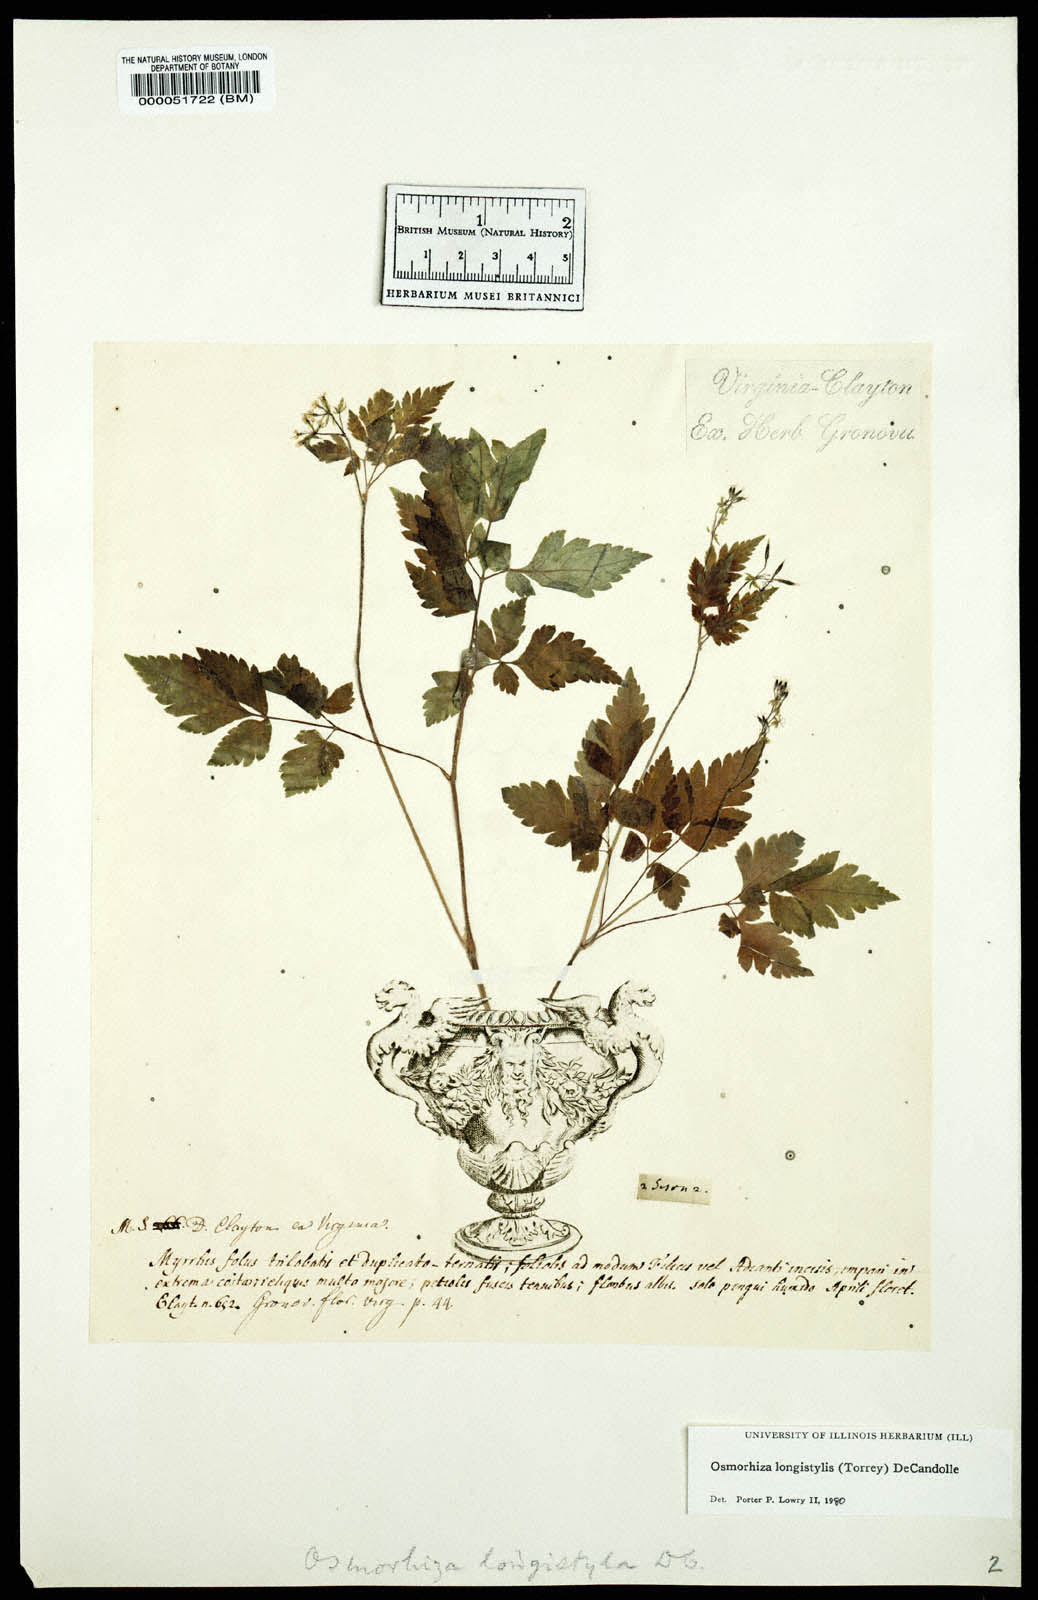 THE NATURAL HISTORY MUSEUM, LONDON
DEPARTMENT OF BOTANY
000051722 (BM)
1 2
BRITISH MUSEUM (NATURAL HISTORY)
1 2 3 4 5
HERBARIUM MUSEI BRITANNICI
Virginia-Clayton
Ex. Herb. Gronovii
2
M. S. D. Clayton ex Virginia.
Myrrhis foliis trilobatis et duplicato-ternatis; foliolis ad modum Filicis vel Adianti incisis, impari in
extrema multo majore; petiolis fuscis tenuibus; floribus albis. solo pingui humido Aprili floret.
Clayt. n. 652. Gronov. flor. virg. p. 44.
UNIVERSITY OF ILLINOIS HERBARIUM (ILL)
Osmorhiza longistylis (Torrey) DeCandolle
Det. Porter P. Lowry II, 1980
Osmorhiza longistyla DC.
2